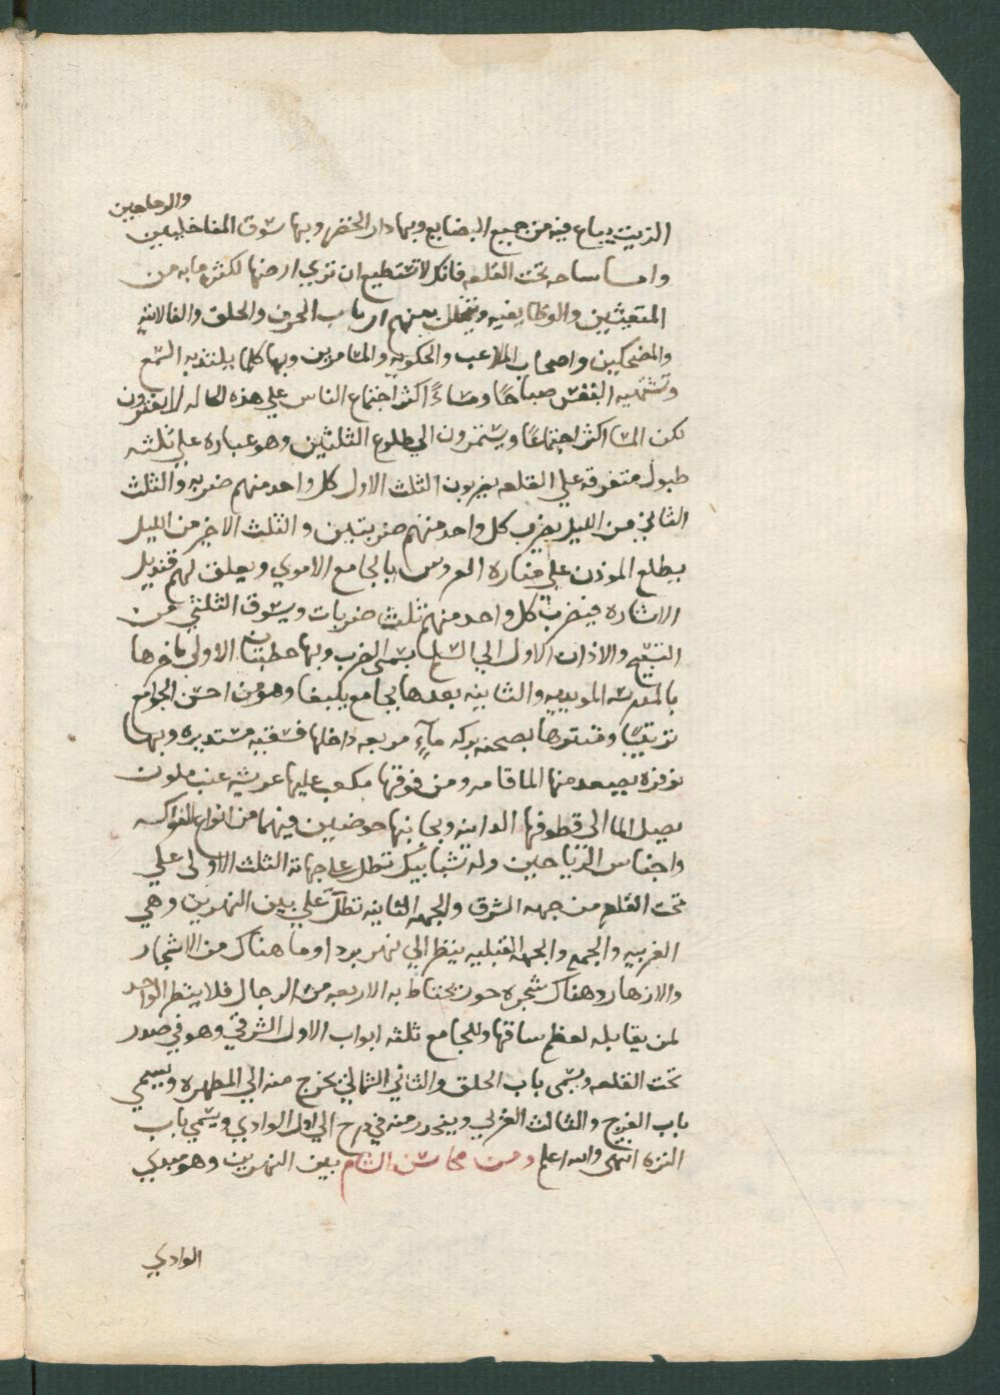 والزجاجين
الزيت يباع فيه من جميع البضايع وبها دار الخضر وبها سوق المناخليين
واما ساحه تحت القلعه فانك لا تستطيع ان تري ارضها لكثرة ما به من
المتعيشين والوظايفيه ويتخلل بعضهم ارباب الحرف والحلق والفالاتيه
والمضحكين واصحاب الملاعب والحكويه والمسامرين وبها كلما يلتذ به السمع
وتشتهيه النفس صباحًا ومساءً اكثر اجتماع الناس علي هذه الحاله لا يفترون
لكن المسا اكثر اجتماعًا ويستمرون الي طلوع الثلثين وهو عباره علي ثلثه
طبول متفرقه علي القلعه يضربون الثلث الاول كل واحد منهم ضربه والثلث
الثاني من الليل يضرب كل واحد منهم ضربتين والثلث الاخير من الليل
يطلع الموذن علي مناره العروس بالجامع الاموي ويعلق لهم قنديل
الاشاره فيضرب كل واحد منهم ثلث ضربات ويسوق الثلثي من
التسبيح والاذان الاول الي السلام يسمى الضرب وبها خطبتان الاولى باخرها
بالمدرسه المويديه والثانيه بعدها بجامع يلبغا وهو من احسن الجوامع
ترتيبًا ومنتزها بصحنه بركه مآءٍ مربعه داخلها فسقيه مستديره وبها
نوفزه يصعد منها الما قامه ومن فوقها مكعب عليها عريشه عنب ملون
يصل الما الى قطوفها الدانيه وبجانبها حوضين فيهما من انواع الفواكه
واجناس الرياحين وله شبابيك تطل علي جهاته الثلث الاولى علي
تحت القلعه من جهه الشرق والجهه الثانيه تطل علي بين النهرين وهي
الغربيه والجمع والجهه القبليه ينظر الي نهر بردا وما هناك من الاشجار
والازهار وهناك شجره حور يحتاط به الاربعه من الرجال فلا ينظر الواحد
لمن يقابله لعظم ساقها وللجامع ثلثه ابواب الاول الشرقي وهو في صدر
تحت القلعه ويسمى باب الحلق والثاني الشمالي يخرج منه الي المطهره ويسمي
باب الفرج والثالث الغربي وينحدر منه في درج الي اول الوادي ويسمي باب
النزه انتهى والله اعلم ومن محاسن الشام بين النهرين وهو مبدي
الوادي